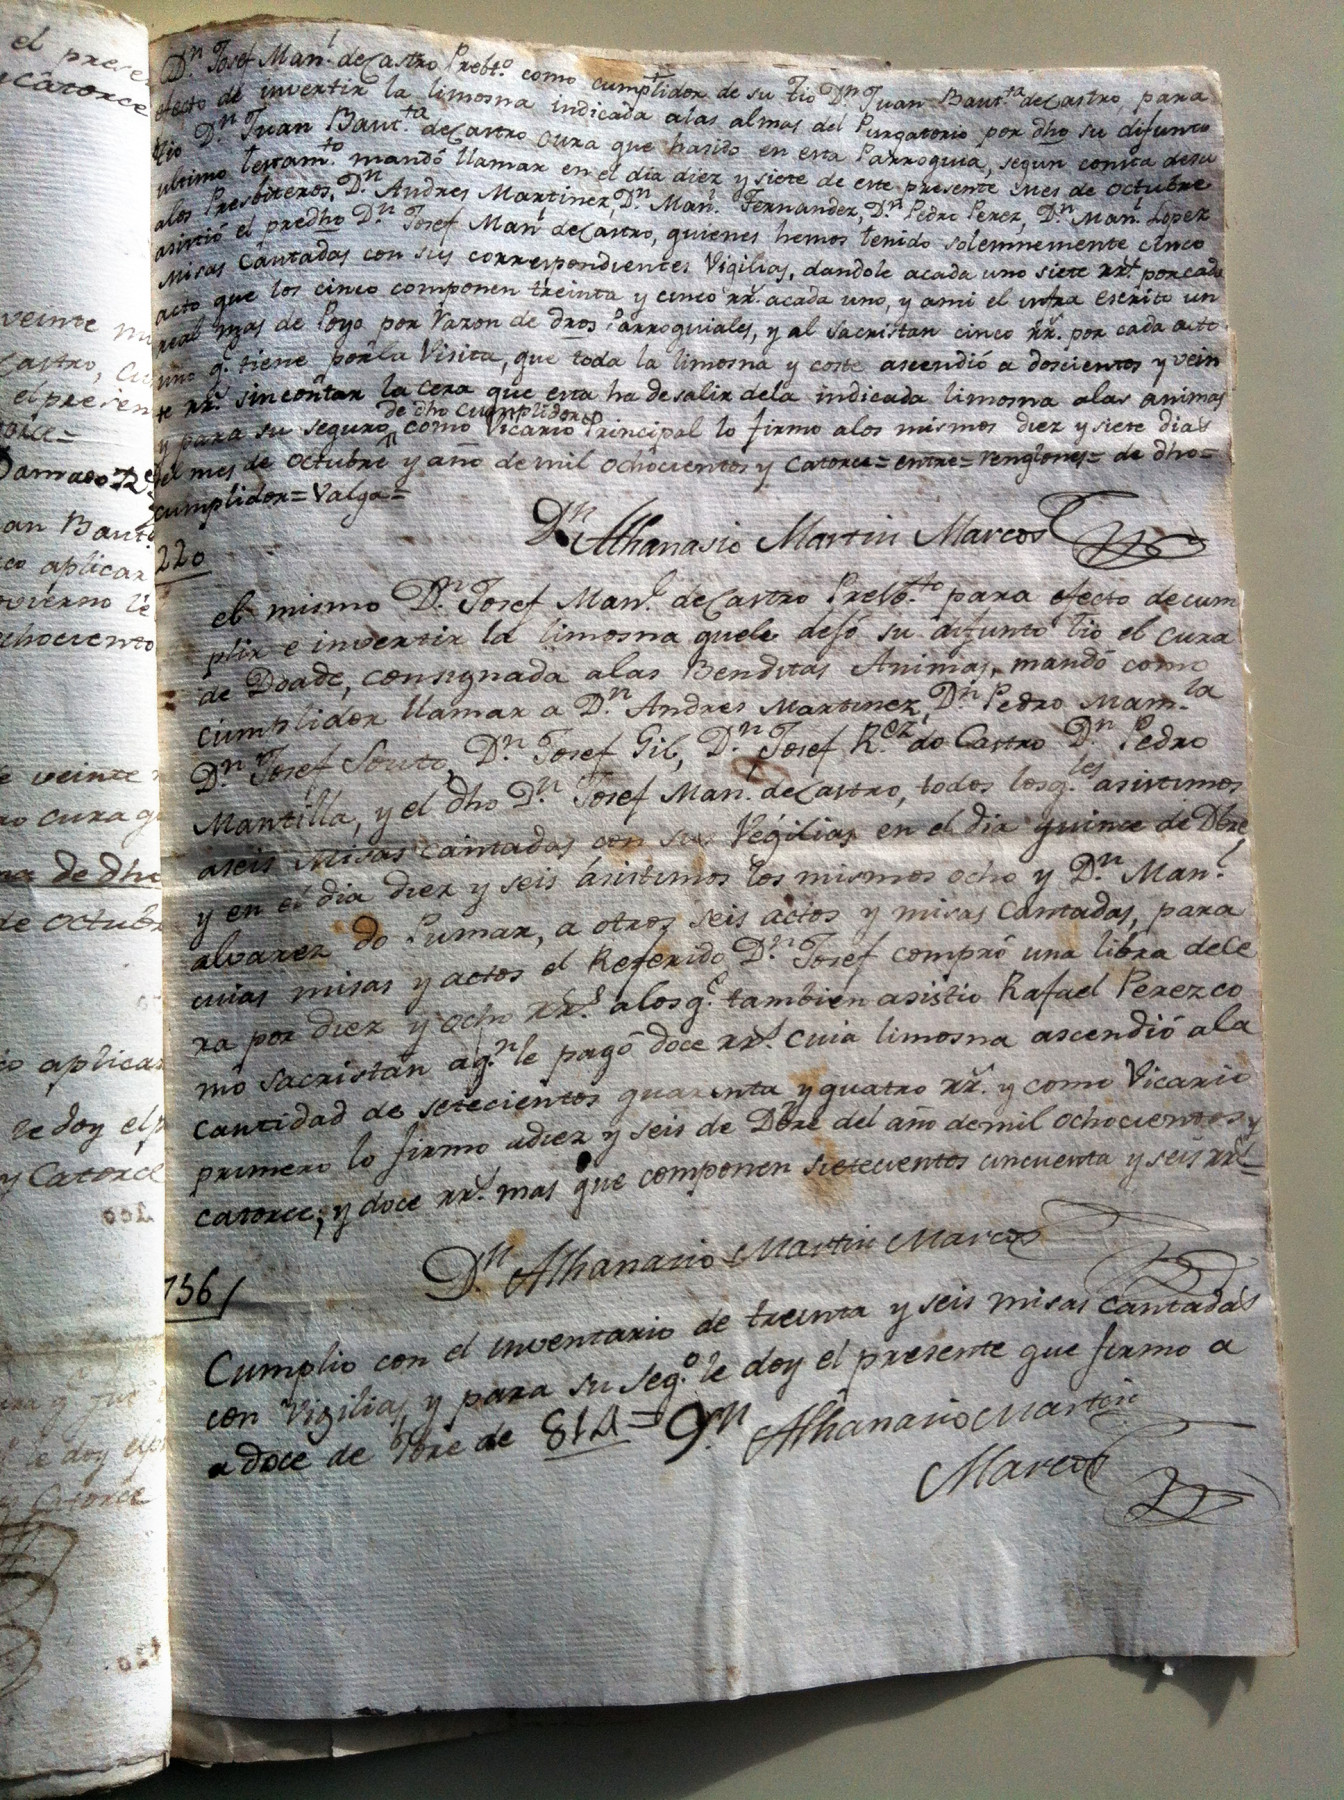 el presen
catorce
veinte
Castro, Cu
el presen
an Baut
co aplicar
ovierno le
chociento
e veinte
ro cura q
na de dho
de octubr
co aplicar
le doy el p
y Catorce
Dn Josef Manl. de Castro Prebto. como cumptidor de su tio Dn Juan Bautta de Castro, para
efecto de invertir la limosna indicada alas almas del Purgatorio por dho su difunto
tio Dn Juan Bautta. de Castro Cura que hasido en esta Parroquia, segun consta desu
ultimo testamto. mandó llamar en el dia diez y siete de este presente mes de octubre
alos Presbiteros, Dn Andres Martinez, Dn Manl. Fernandez, Dn Pedro Perez, Dn Manl. Lopez
asistió el predho Dn Josef Manl de Castro, quienes hemos tenido solemnemente cinco
Misas Cantadas con sus correspondientes Vigilias, dandole acada uno siete rrs. por cada
acto que los cinco componen treinta y cinco rr. acada uno, y ami el infra escrito un
real mas de Poyo por Razon de dros Parroquiales, y al Sacristan cinco rr. por cada acto
uno q. tiene por la Visita, que toda la limosna y coste ascendió a doscientos y vein
te rrs. sin contar la cera que esta ha de salir dela indicada limosna alas animas
de dho cumplidor
y para su seguro, como Vicario Principal lo firmo alos mismos diez y siete dias
del mes de Octubre y año de mil ochocientos y catorce = entre = renglones = de dho =
cumplidor = Valga =
Dn Athanasio Martin Marcos
220
el mismo Dn Josef Manl. de Castro Prebto. para efecto decum
plir e invertir la limosna quele dejó su difunto tio el cura
de Doade, consignada alas Benditas Animas, mandó como
cumplidor llamar a Dn Andres Martinez, Dn Pedro Mamla
Dn Josef Souto, Dn Josef Gil, Dn Josef Rez do Castro Dn Pedro
Mantilla, y el dho Dn Josef Manl. de Castro, todos losq.les asistimos
aseis Misas cantadas con sus Vegilias en el dia quince de Dbre,
y en el dia diez y seis asistimos los mismos ocho y Dn Manl.
alvarez do Pumar, a otros seis actos y misas Cantadas, para
cuias misas y actos el Referido Dn Josef compró una libra dece
ra por diez y ocho rrs. alosq.e tambien asistio Rafael Perez co
mo Sacristan aq.n le pagó doce rrs. cuia limosna ascendió ala
cantidad de setecientos quarenta y quatro rr. y como Vicario
primero lo firmo adiez y seis de Dbre del año demil ochocientos y
catorce, y doce rrs. mas que componen setecientos cincuenta y seis rrs =
Dn Athanasio Martin Marcos
756/
Cumplio con el inventario de treinta y seis misas cantadas
con Vigilias, y para su seg.o le doy el presente que firmo a
a doce de bre de 814 = Dn Athanasio Martin
Marcos